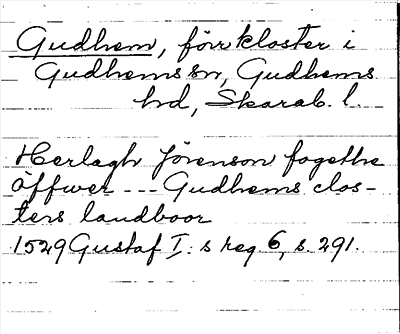 Gudhem, förr kloster i
Gudhems sn, Gudhems
hd, Skarab. l.
Herlagh Jörenson fogethe
åffwer --- Gudhems clos-
ters landboor
1529 Gustaf I:s reg 6, s. 291.